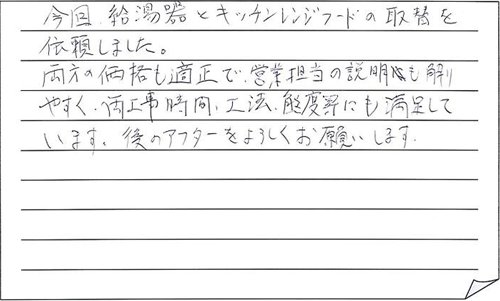 今回、給湯器とキッチンレンジフードの取替を
依頼しました。
両方の価格も適正で、営業担当の説明も解り
やすく、両工事時間、工法、態度等にも満足して
います。後のアフターをよろしくお願いします。